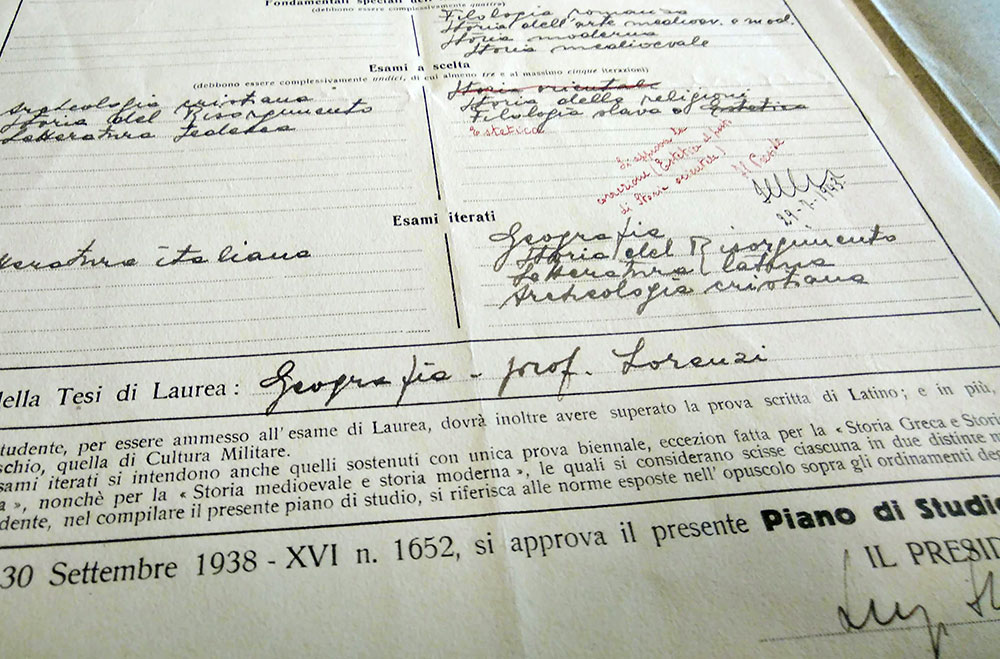 Fondamentali speciali dell'
(debbono essere complessivamente quattro)
Filologia romanza
Storia dell'arte medioev. e mod.
Storia moderna
Storia medioevale
Esami a scelta
(debbono essere complessivamente undici, di cui almeno tre e al massimo cinque iterazioni)
Archeologia cristiana
Storia del Risorgimento
Letteratura tedesca
Storia orientale
Storia delle religioni
Filologia slava o Estetica
Estetica
Si approva la
correzione (Estetica al posto
di Storia orientale)
Il Preside
29-1-1943
Esami iterati
tteratura italiana
Geografia
Storia del Risorgimento
Letteratura latina
Archeologia cristiana
della Tesi di Laurea: Geografia - prof. Lorenzi
tudente, per essere ammesso all'esame di Laurea, dovrà inoltre avere superato la prova scritta di Latino; e in più,
schio, quella di Cultura Militare.
sami iterati si intendono anche quelli sostenuti con unica prova biennale, eccezion fatta per la « Storia Greca e Stori
a », nonchè per la « Storia medioevale e storia moderna », le quali si considerano scisse ciascuna in due distinte
dente, nel compilare il presente piano di studio, si riferisca alle norme esposte nell' opuscolo sopra gli ordinamenti de
30 Settembre 1938 - XVI n. 1652, si approva il presente Piano di Studio
IL PRESID